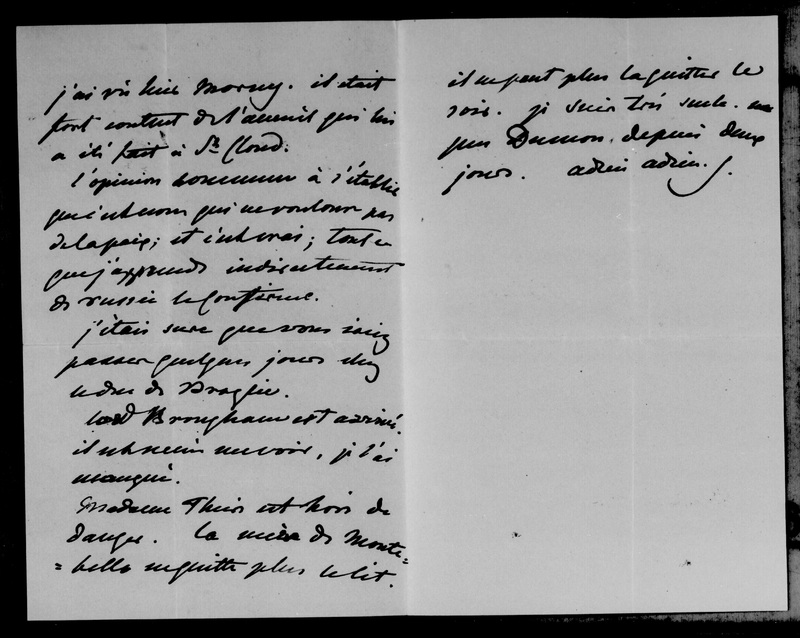 j'ai vu hier Morny. il était
fort content de l'accueil qui lui
a été fait à St Cloud.
l'opinion commence à s'établir
que c'est nous qui ne voulons pas
de la paix; et c'est vrai; tout ce
que j'apprends indirectement
de russie le confirme.
j'étais sure que vous iriez
passer quelques jours chez
le duc de Broglie.
lord Brougham est arrivé.
il est venu me voir, je l'ai
manqué.
Madame Thiers est hors de
danger. la mère de Monte=
=bello ne quitte plus le lit.
il ne peut plus la quitter le
soir. je suis très seule.
pas Dumon. depuis deux
jours. adieu adieu.